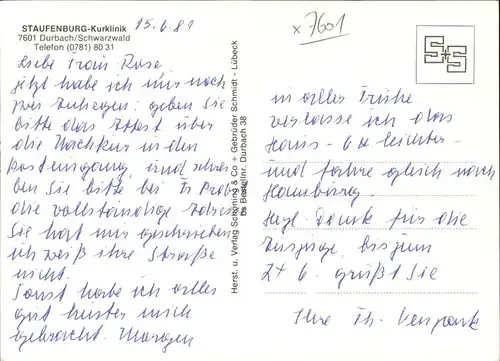 STAUFENBURG-Kurklinik
7601 Durbach/Schwarzwald
Telefon (0781) 80 31
15.6.81
x 7601
Liebe Frau Rose
jetzt habe ich nur noch
zwei geben Sie
bitte das über
die Nachkur in den
Posteingang, und schrei-
ben Sie bitte bei Fr
die vollständige Adresse
Sie hat mir geschrieben
ich weiß ihre Straße
nicht.
Sonst habe ich alles
gut hinter mich
gebracht. Morgen
Herst. u. Verlag Schöning & Co + Gebrüder Schmidt - Lübeck
Bestellnr. Durbach 38
S+S
in aller Frühe
verlasse ich das
Haus - 6 kg leichter -
und fahre gleich nach
Hamburg.
Hzl. Dank für die
bis zum
24 6. grüßt Sie
Ihre Th.